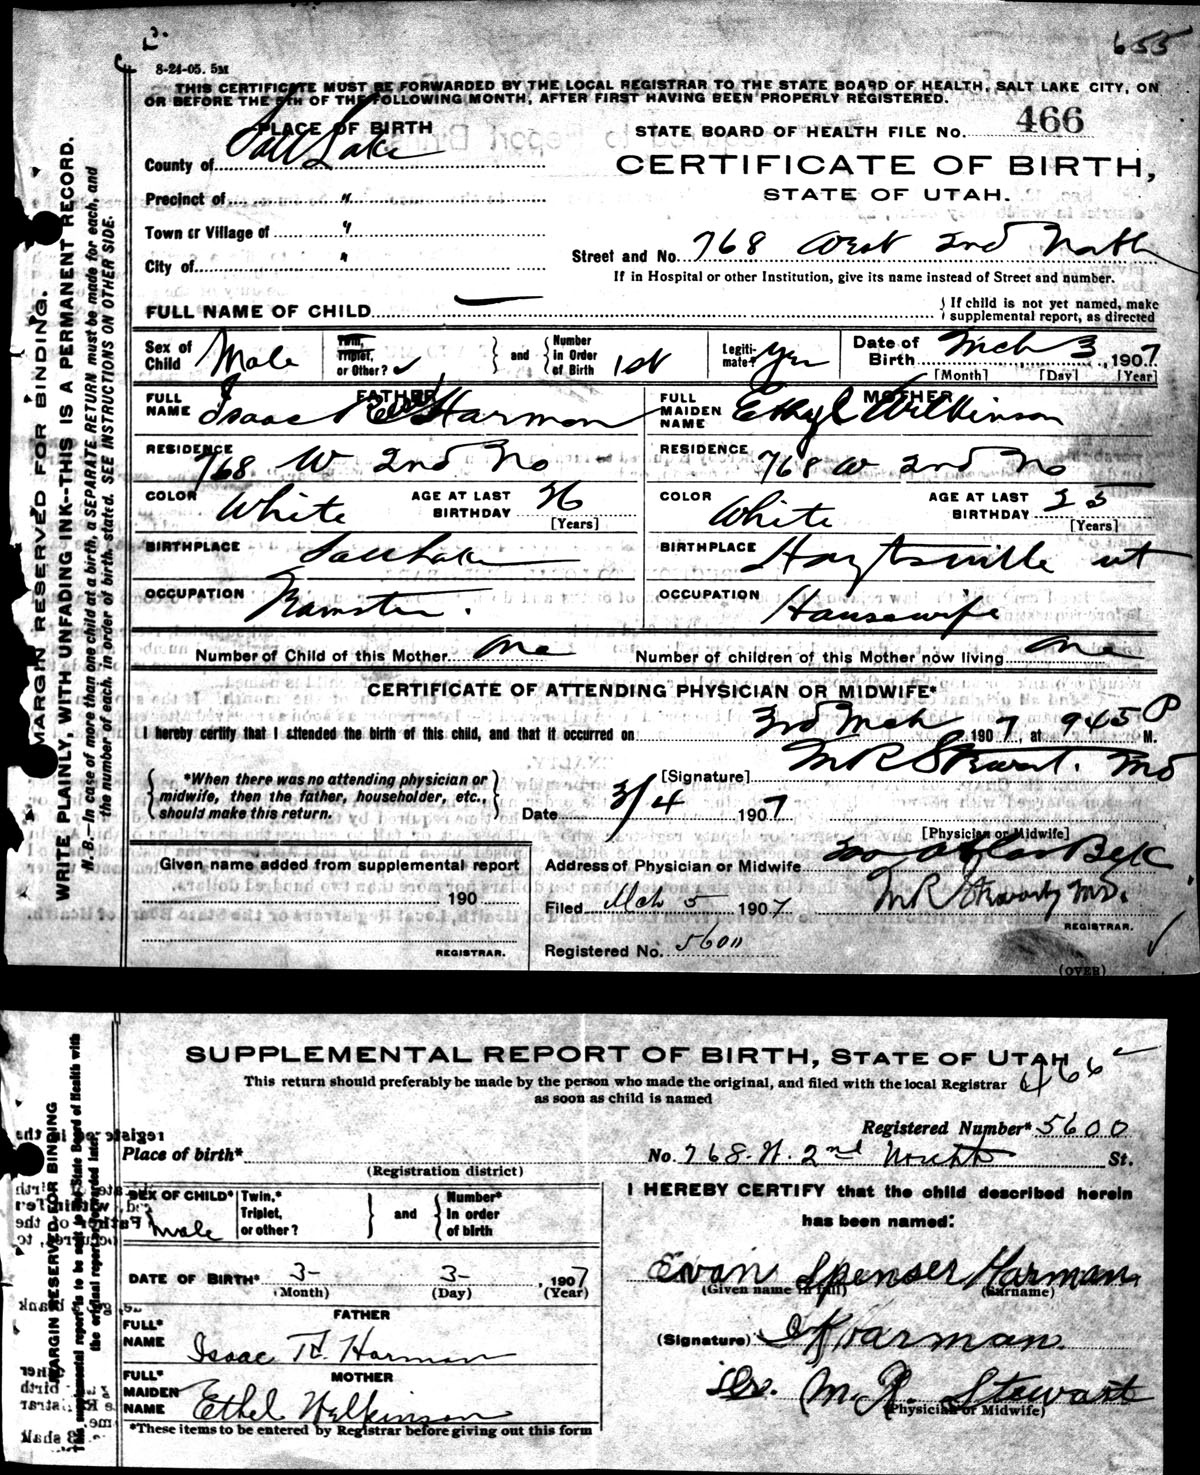 655
8-24-05. 5M
THIS CERTIFICATE MUST BE FORWARDED BY THE LOCAL REGISTRAR TO THE STATE BOARD OF HEALTH, SALT LAKE CITY, ON
OR BEFORE THE 5TH OF THE FOLLOWING MONTH, AFTER FIRST HAVING BEEN PROPERLY REGISTERED.
PLACE OF BIRTH
County of Salt Lake
Precinct of "
Town or Village of "
City of "
STATE BOARD OF HEALTH FILE No. 466
CERTIFICATE OF BIRTH,
STATE OF UTAH.
Street and No. 768 West 2nd North
If in Hospital or other Institution, give its name instead of Street and number.
FULL NAME OF CHILD
If child is not yet named, make
supplemental report, as directed
Sex of Child Male
Twin, Triplet, or Other?
and
Number in Order of Birth 1st
Legitimate? Yes
Date of Birth Mch 3, 1907
[Month] [Day] [Year]
FATHER
FULL NAME Isaac Harman
RESIDENCE 768 W 2nd No
COLOR White
AGE AT LAST BIRTHDAY 26
[Years]
BIRTHPLACE Salt Lake
OCCUPATION Teamster.
MOTHER
FULL MAIDEN NAME Ethyl Wilkinson
RESIDENCE 768 W 2nd No
COLOR White
AGE AT LAST BIRTHDAY 25
[Years]
BIRTHPLACE Hoytsville ut
OCCUPATION Housewife
Number of Child of this Mother One
Number of children of this Mother now living One
CERTIFICATE OF ATTENDING PHYSICIAN OR MIDWIFE*
I hereby certify that I attended the birth of this child, and that it occurred on 3rd Mch 1907, at 945 P M.
*When there was no attending physician or
midwife, then the father, householder, etc.,
should make this return.
[Signature] M R Stewart. MD
Date 3/4 1907
[Physician or Midwife]
Given name added from supplemental report
190
REGISTRAR.
Address of Physician or Midwife
Filed Mch 5 1907
M R Stewart MD.
REGISTRAR.
Registered No. 5600
(OVER)
MARGIN RESERVED FOR BINDING.
WRITE PLAINLY, WITH UNFADING INK--THIS IS A PERMANENT RECORD.
N. B.—In case of more than one child at a birth, a SEPARATE RETURN must be made for each, and
the number of each, in order of birth, stated. SEE INSTRUCTIONS ON OTHER SIDE.
SUPPLEMENTAL REPORT OF BIRTH, STATE OF UTAH
466
This return should preferably be made by the person who made the original, and filed with the local Registrar
as soon as child is named
Registered Number* 5600
Place of birth*
(Registration district)
No. 768. W. 2nd North St.
SEX OF CHILD* Male
Twin,* Triplet, or other?
and
Number* In order of birth
DATE OF BIRTH* 3- 3- , 1907
(Month) (Day) (Year)
FATHER
FULL* NAME Isaac H. Harman
MOTHER
FULL* MAIDEN NAME Ethel Wilkinson
*These items to be entered by Registrar before giving out this form
I HEREBY CERTIFY that the child described herein
has been named:
Evan Spenser Harman
(Given name in full) (Surname)
(Signature) I H Harman.
Dr. M. R. Stewart
(Physician or Midwife)
MARGIN RESERVED FOR BINDING
This supplemental report is to be sent to the State Board of Health with
the original report or forwarded later.